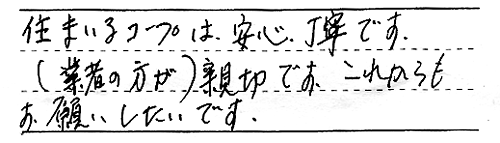 住まいるコープは、安心、丁寧です。
(業者の方が)親切です。これからも
お願いしたいです。